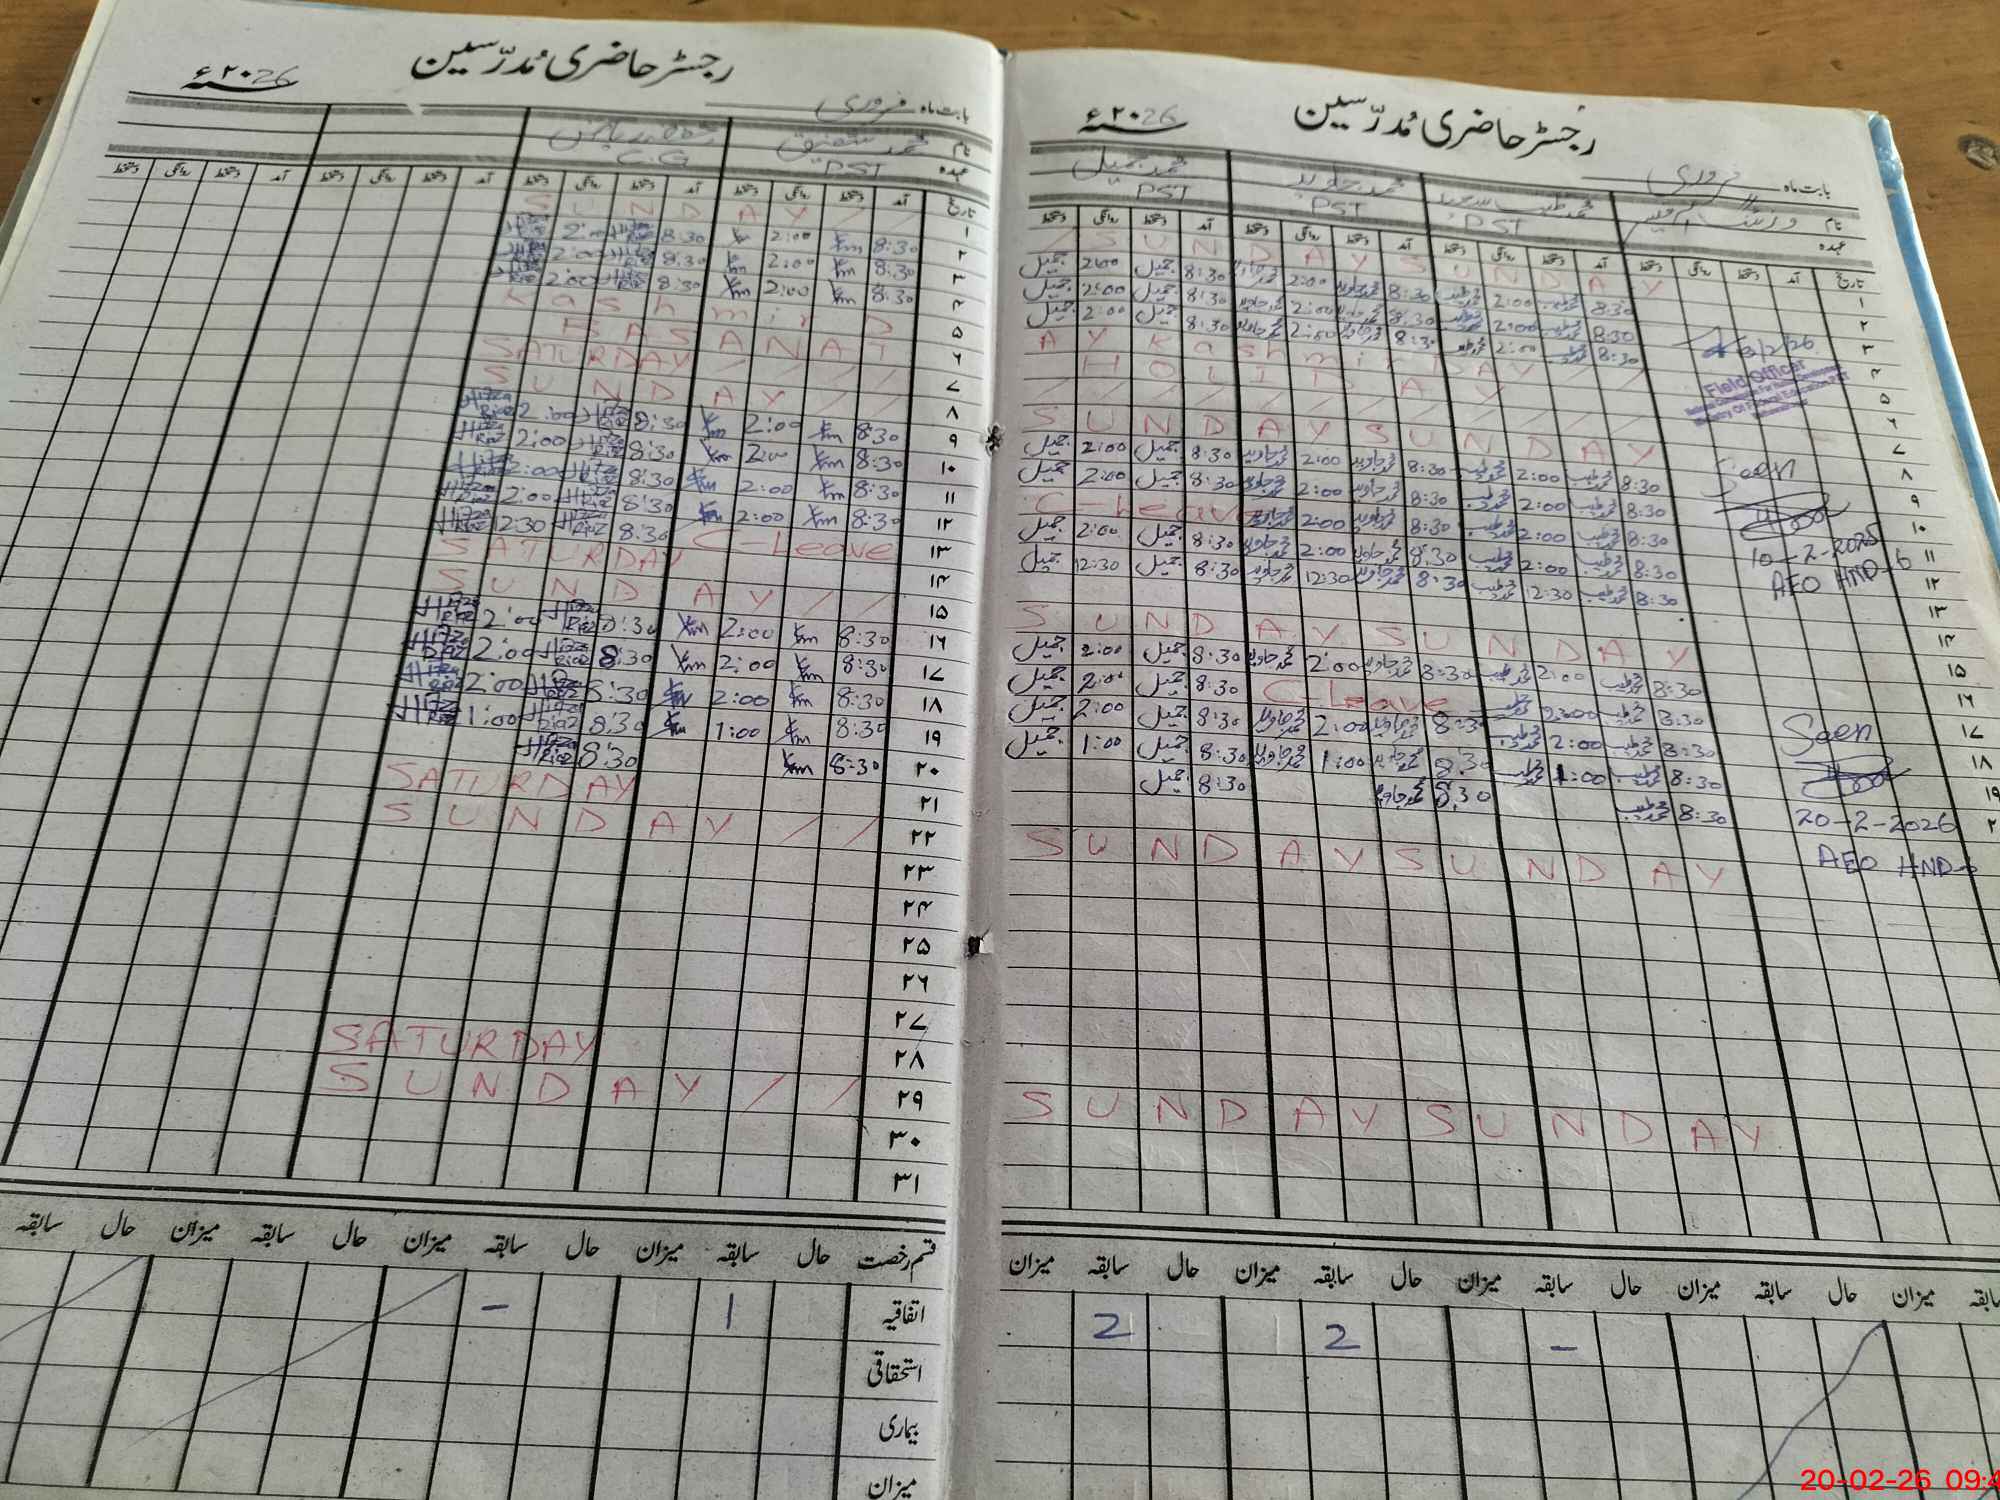 رجسٹر حاضری مُدرّسین
۲۰26ء
بابت ماہ فروری
نام محمد شفیق
عہدہ PST C.G
تاریخ آمد دستخط روانگی دستخط آمد دستخط روانگی دستخط آمد دستخط روانگی دستخط آمد دستخط
۱ SUNDAY //
۲ 8:30 2:00 8:30 2:00
۳ 8:30 2:00 8:30 2:00
۴ 8:30 2:00 8:30 2:00
۵ Kashmir D
۶ BASANAT
۷ SATURDAY ////
۸ SUNDAY //
۹ 8:30 2:00 8:30 2:00
۱۰ 8:30 2:00 8:30 2:00
۱۱ 8:30 2:00 8:30 2:00
۱۲ 8:30 2:00 8:30 2:00
۱۳ C-Leave 8:30 12:30
۱۴ SATURDAY
۱۵ SUNDAY //
۱۶ 8:30 2:00 8:30 2:00
۱۷ 8:30 2:00 8:30 2:00
۱۸ 8:30 2:00 8:30 2:00
۱۹ 8:30 1:00 8:30 1:00
۲۰ 8:30 8:30
۲۱ SATURDAY
۲۲ SUNDAY //
۲۳
۲۴
۲۵
۲۶
۲۷
۲۸ SATURDAY
۲۹ SUNDAY //
۳۰
۳۱
قسم رخصت حال سابقہ میزان حال سابقہ میزان حال سابقہ میزان حال سابقہ
اتفاقیہ 1 -
استحقاقی
بیماری
میزان
رجسٹر حاضری مُدرّسین
۲۰26ء
بابت ماہ فروری
نام محمد طیب سعید محمد جاوید محمد جمیل
عہدہ PST PST PST
تاریخ آمد دستخط روانگی دستخط آمد دستخط روانگی دستخط آمد دستخط روانگی دستخط آمد دستخط روانگی دستخط
۱ / SUNDAY SUNDAY
۲ 8:30 محمد طیب 2:00 محمد طیب 8:30 محمد جاوید 2:00 محمد جاوید 8:30 جمیل 2:00 جمیل
۳ 8:30 محمد طیب 2:00 محمد طیب 8:30 محمد جاوید 2:00 محمد جاوید 8:30 جمیل 2:00 جمیل
۴ 8:30 محمد طیب 2:00 محمد طیب 8:30 محمد جاوید 2:00 محمد جاوید 8:30 جمیل 2:00 جمیل
۵ AY Kashmir DAY //
۶ HOLIDAY
۷
۸ SUNDAY SUNDAY
۹ 8:30 محمد طیب 2:00 محمد طیب 8:30 محمد جاوید 2:00 محمد جاوید 8:30 جمیل 2:00 جمیل
۱۰ 8:30 محمد طیب 2:00 محمد طیب 8:30 محمد جاوید 2:00 محمد جاوید 8:30 جمیل 2:00 جمیل
۱۱ 8:30 محمد طیب 2:00 محمد طیب 8:30 محمد جاوید 2:00 محمد جاوید C-Leave
۱۲ 8:30 محمد طیب 2:00 محمد طیب 8:30 محمد جاوید 2:00 محمد جاوید 8:30 جمیل 2:00 جمیل
۱۳ 8:30 محمد طیب 12:30 محمد طیب 8:30 محمد جاوید 12:30 محمد جاوید 8:30 جمیل 12:30 جمیل
۱۴
۱۵ SUNDAY SUNDAY
۱۶ 8:30 محمد طیب 2:00 محمد طیب 8:30 محمد جاوید 2:00 محمد جاوید 8:30 جمیل 2:00 جمیل
۱۷ 8:30 محمد طیب 2:00 محمد طیب C-Leave 8:30 جمیل 2:00 جمیل
۱۸ 8:30 محمد طیب 2:00 محمد طیب 8:30 محمد جاوید 2:00 محمد جاوید 8:30 جمیل 2:00 جمیل
۱۹ 8:30 محمد طیب 1:00 محمد طیب 8:30 محمد جاوید 1:00 محمد جاوید 8:30 جمیل 1:00 جمیل
8:30 محمد طیب 8:30 محمد جاوید 8:30 جمیل
SUNDAY SUNDAY
SUNDAY SUNDAY
Field Officer
Seen
10-2-2025
AEO HND-6
Seen
20-2-2026
AEO HND-6
میزان حال سابقہ میزان حال سابقہ میزان حال سابقہ میزان
- 2 2
20-02-26 09:4